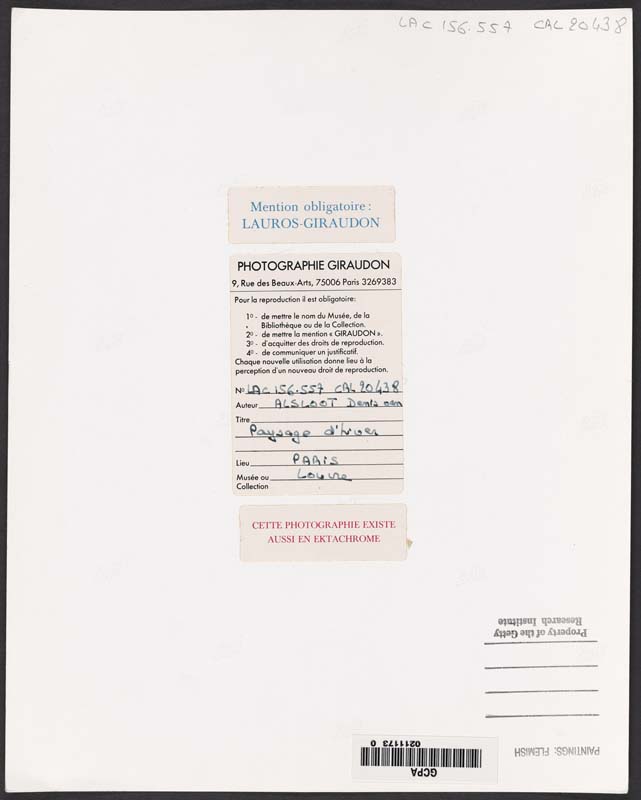 LAC 156.557 CAL 20438
Mention obligatoire :
LAUROS-GIRAUDON
PHOTOGRAPHIE GIRAUDON
9, Rue des Beaux-Arts, 75006 Paris 3269383
Pour la reproduction il est obligatoire:
1º - de mettre le nom du Musée, de la
Bibliothèque ou de la Collection.
2º - de mettre la mention « GIRAUDON ».
3º - d'acquitter des droits de reproduction.
4º - de communiquer un justificatif.
Chaque nouvelle utilisation donne lieu à la
perception d'un nouveau droit de reproduction.
Nº LAC 156.557 CAL 20438
Auteur ALSLOOT Denis van
Titre
Paysage d'hiver
Lieu PARIS
Musée ou Louvre
Collection
CETTE PHOTOGRAPHIE EXISTE
AUSSI EN EKTACHROME
Property of the Getty
Research Institute
PAINTINGS: FLEMISH
GCPA
0211173 0